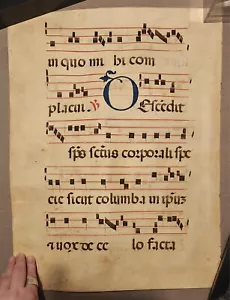 in quo mi hi com
placui. ℣ Descedit
sp̄s sct̄us corporali spe
cie sicut columba in ip̄uz
⁊ uox de ce lo facta